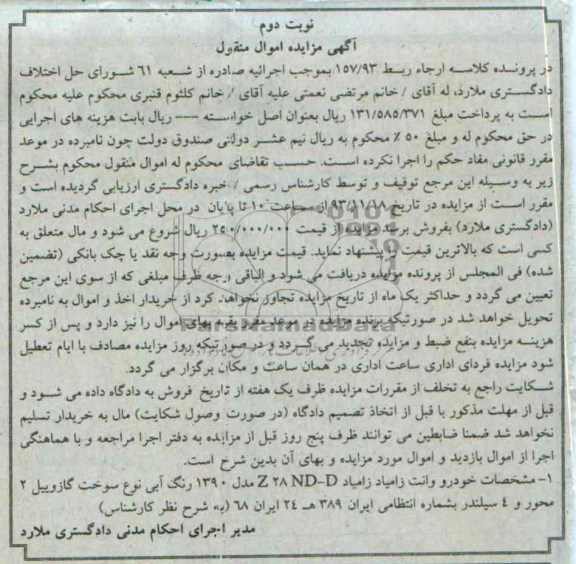 نوبت دوم
آگهی مزایده اموال منقول
در پرونده کلاسه ارجاء ربط ۱۵۷/۹۳ بموجب اجرائیه صادره از شعبه ۶۱ شورای حل اختلاف
دادگستری ملارد، له آقای / خانم مرتضی نعمتی علیه آقای / خانم کلثوم قنبری محکوم علیه محکوم
است به پرداخت مبلغ ۱۳۱/۵۸۵/۳۷۱ ریال بعنوان اصل خواسته ---- ریال بابت هزینه های اجرایی
در حق محکوم له و مبلغ ۵۰ ٪ محکوم به ریال نیم عشر دولتی صندوق دولت چون نامبرده در موعد
مقرر قانونی مفاد حکم را اجرا نکرده است. حسب تقاضای محکوم له اموال منقول محکوم بشرح
زیر به وسیله این مرجع توقیف و توسط کارشناس رسمی / خبره دادگستری ارزیابی گردیده است و
مقرر است از مزایده در تاریخ ۹۳/۱۱/۱۸ از ساعت ۱۰ تا پایان در محل اجرای احکام مدنی ملارد
(دادگستری ملارد) بفروش برسد مزایده از قیمت ۲۴۰/۰۰۰/۰۰۰ ریال شروع می شود و مال متعلق به
کسی است که بالاترین قیمت را پیشنهاد نماید. قیمت مزایده بصورت وجه نقد یا چک بانکی (تضمین
شده) فی المجلس از پرونده مزایده دریافت می شود و الباقی وجه ظرف مبلغی که از سوی این مرجع
تعیین می گردد و حداکثر یک ماه از تاریخ مزایده تجاوز نخواهد کرد از خریدار اخذ و اموال به نامبرده
تحویل خواهد شد در صورتیکه برنده مزایده در موعد مقرر بقیه بهای اموال را نیز دارد و پس از کسر
هزینه مزایده بنفع ضبط و مزایده تجدید می گردد و در صورتیکه روز مزایده مصادف با ایام تعطیل
شود مزایده فردای اداری ساعت اداری در همان ساعت و مکان برگزار می گردد.
شکایت راجع به تخلف از مقررات مزایده ظرف یک هفته از تاریخ فروش به دادگاه داده می شود و
قبل از مهلت مذکور با قبل از اتخاذ تصمیم دادگاه (در صورت وصول شکایت) مال به خریدار تسلیم
نخواهد شد ضمنا ضابطین می توانند ظرف پنج روز قبل از مزایده به دفتر اجرا مراجعه و با هماهنگی
اجرا از اموال بازدید و اموال مورد مزایده و بهای آن بدین شرح است.
۱- مشخصات خودرو وانت زامیاد زامیاد Z ۲۸ ND-D مدل ۱۳۹۰ رنگ آبی نوع سوخت گازوییل ۲
محور و ۴ سیلندر بشماره انتظامی ایران ۳۸۹ هـ ۲۴ ایران ۶۸ (به شرح نظر کارشناس)
مدیر اجرای احکام مدنی دادگستری ملارد